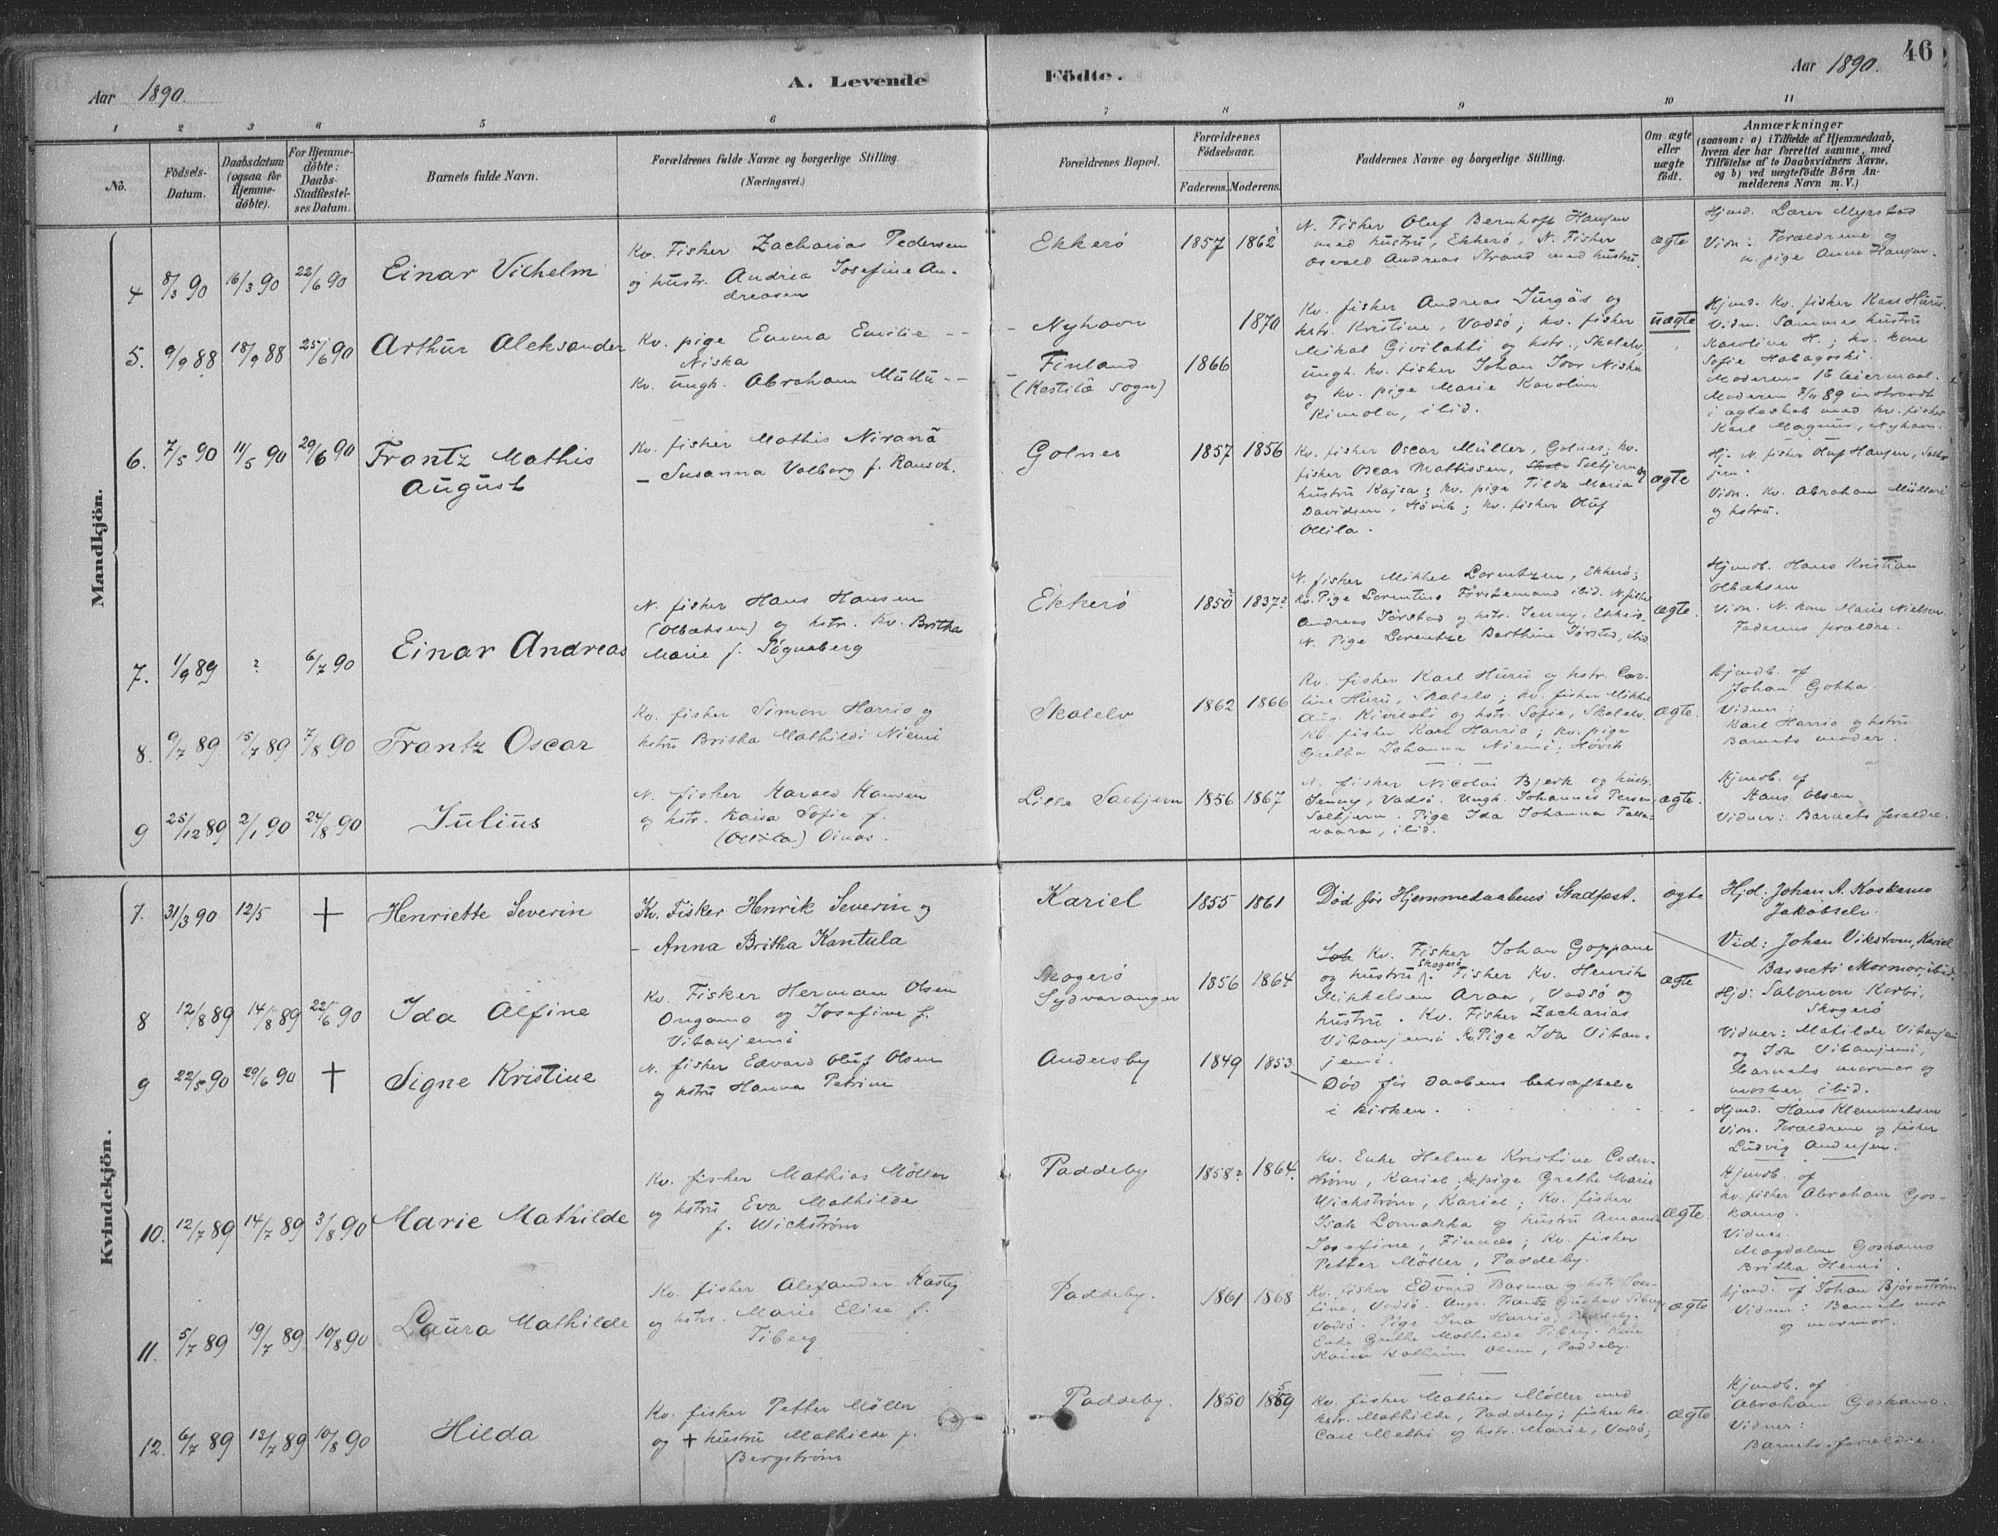 46
Aar 1890. A. Levende Födte. Aar 1890.
1 2 3 4 5 6 7 8 9 10 11
No.
Födsels-Datum.
Daabsdatum (ogsaa for Hjemmedöbte).
For Hjemmedöbte: Daabs-Stadfæstelses Datum.
Barnets fulde Navn.
Forældrenes fulde Navne og borgerlige Stilling. (Næringsvei.)
Forældrenes Bopæl.
Forældrenes Födselsaar.
Faderens. Moderens.
Faddernes Navne og borgerlige Stilling.
Om ægte eller uægte födt.
Anmærkninger
(saasom: a) i Tilfælde af Hjemmedaab, hvem der har forrettet samme, med Tilföielse af to Daabsvidners Navne, og b) ved uægtefödte Börn Anmelderens Navn m. V.)
Mandkjön.
4 8/3 90 16/3 90 22/6 90 Einar Vilhelm
Kv. Fisker Zacharias Pedersen
og hustr. Andrea Josefine An-
dreasen
Ekkerö 1857 1862
N. Fisker Oluf Bernhoft Hansen
med hustru, Ekkerö, N. Fisker
Osvald Andreas Strand med hustru.
ægte
Hjmd. Lærer Myrstad
Vidn: Forældrene og
n. pige Anna Hansen.
5. 9/9 88 18/9 88 25/6 90 Arthur Aleksander
Kv. pige Emma Emilie --
Niska
Kv. Ungk. Abraham Mullu --
- Nyhavn 1870
- Finland 1866
(Kestilä sogn)
Kv. fisker Andreas Jurgäs og
hstr. Kristine, Vadsö; kv. fisker
Mikal Givilahti og hstr., Skalelv,
Ungk. kv. fisker Johan Ivar Niska
og kv. pige Marie Karoline
Kimola, ibid.
uægte
Hjmd. Kv. fisker Karl Huru
Vidn. Sammes hustru
Karoline H.; kv. kone
Sofie Habagoski.
Moderens 1ste leiermaal.
Moderen 7/11 89 indtraadt
i ægteskab med kv. fisker
Karl Magnus, Nyhavn.
6. 7/5 90 11/5 90 29/6 90 Frantz Mathis
August
Kv. fisker Mathis Niranä
- Susanna Valborg f. Rausch.
Golnes 1857 1856
Kv. fisker Oscar Müller, Golnes; kv.
fisker Oscar Mattissen, Saltjern og
hustru Kajsa; kv. pige Tilda Maria
Davidsen, Hövik; kv. fisker Oluf
Ollila.
ægte
Hj. N. fisker Oluf Hansen, Salt-
jern.
Vidn. Kv. Abraham Müllari
og hstru.
7. 1/9 89 ? 6/7 90 Einar Andreas
N. fisker Hans Hansen
(Olbæksen) og hstr. Kv. Britha
Marie f. Sögneberg
Ekkerö 1850? 1837?
N. fisker Mikkel Lorentzen, Ekkerö;
kv. Pige Lorentine Förstemand ibid. N. fisker
Andreas Törstad og hstr. Jenny, Ekkerö.
N. Pige Lorentze Berthine Törstad, ibid
ægte.
Hjmdb. Hans Kristian
Olbæksen
Vidn. N. kone Maria Nielsen.
Faderens forældre.
8. 9/7 89 15/7 89 7/8 90 Frantz Oscar
Kv. fisker Simon Harrio og
hstru Britha Mathildi Niemi
Skalelv 1862 1866
Kv. fisker Karl Huru og hstr. Caro-
line Huru, Skalelv; kv. fisker Mikkel
Aug. Kivilahti og hstr. Sofie, Skalelv.
Kv fisker Karl Harrio; kv. pige
Gretha Johanna Niemi; Hövik
ægte.
Hjmdb. af
Johan Gotha.
Vidner:
Karl Harrio og hstru
Barnets moder.
9 25/12 89 2/1 90 24/8 90 Julius
N. fisker Harald Hansen
og hstr. Kaisa Sofie f.
(Ollila) Oinas.
Lille Saltjern 1856 1867
N. fisker Nicolai Bjerk og hustr.
Jenny, Vadsö. Ungk. Johannes Persen,
Saltjern. Pige Ida Johanna Talla-
vaara, ibid.
ægte.
Hjmdb. af
Hans Olsen
Vidner: Barnets forældre.
Kvindekjön.
7. 31/3 90 12/5 † Henriette Severin
Kv. Fisker Henrik Severin og
- Anna Britha Kantula
Kariel 1855 1861
Död för Hjemmedaabens Stadfæst.
ægte
Hjd. Johan A. Koskamo
Jakobselv.
Vid: Johan Vikström, Kariel
Barnets Mormor, ibid.
8 12/8 89 14/8 89 22/6 90 Ida Alfine
Kv. Fisker Herman Olsen
Ongamo og Josefine f.
Vitanjemi
Skogerö
Sydvaranger 1856 1864
Joh Kv. Fisker Johan Goppane
og hustru Skogerö. Fisker Kv. Henrik
Mikkelsen Araa, Vadsö og
hustru. Kv. Fisker Zacharias
Vitanjemi & Pige Ida Vitan-
jemi.
ægte
Hjd: Salomon Kerbi,
Skogerö
Vidner: Matilde Vitanjemi
og Ida Vitanjemi,
Barnets mormor og
moster ibid.
9 22/5 90 29/6 90 † Signe Kristine
N. fisker Edvard Oluf Olsen
og hstru Hanna Petrine
Andersby 1849 1853
Död för Daabens bekræftelse
i kirken.
Hjmd. Hans Klemmetsen
Vidn. Forældrene og fisker
Ludvig Andersen.
10. 12/7 89 14/7 89 3/8 90 Marie Mathilde
Kv. fisker Mathias Möller
og hstru Eva Mathilde
f. Wickström
Paddeby 1858? 1864.
Kv. Enke Helene Kristine Ceder-
ström, Kariel; kv. pige Grethe Marie
Wickström, Kariel; kv. fisker
Isak Lomakka og hustru Amanda
Josefine, Finnes; kv. fisker
Petter Möller, Paddeby.
ægte.
Hjmdb. af
kv. fisker Abraham Gos-
kamo.
Vidner:
Magdalene Goskamo
Britha Hemi.
11. 5/7 89 19/7 89 10/8 90 Laura Mathilde
Kv. fisker Alexander Kasteg
og hstr. Marie Elise f.
Tiberg
Paddeby. 1861 1868
Kv. fisker Edvard Basma og hstr. Jose-
fine, Vadsö. Ungk. Frantz Gustav Tiberg
Vadsö. Pige Ina Harrio, Paddeby.
Enke Grethe Mathilde Tiberg. Kone
Kaisa Kathrine Olsen, Paddeby.
ægte
Hjmd. af Johan Björnström
Vidner: Barnets mor
og mormor.
12. 6/7 89 12/7 89 10/8 90 Hilda
Kv. fisker Petter Möller
og † hustru Mathilde f.
Bergström
Paddeby. 1850 1859
Kv. fisker Mathias Möller med
hstr. Mathilde, Paddeby; fisker kv.
Carl Metti og hstr. Marie, Vadsö;
ægte
Hjmdb. af
Abraham Goskamo.
Vidner:
Barnets forældre.